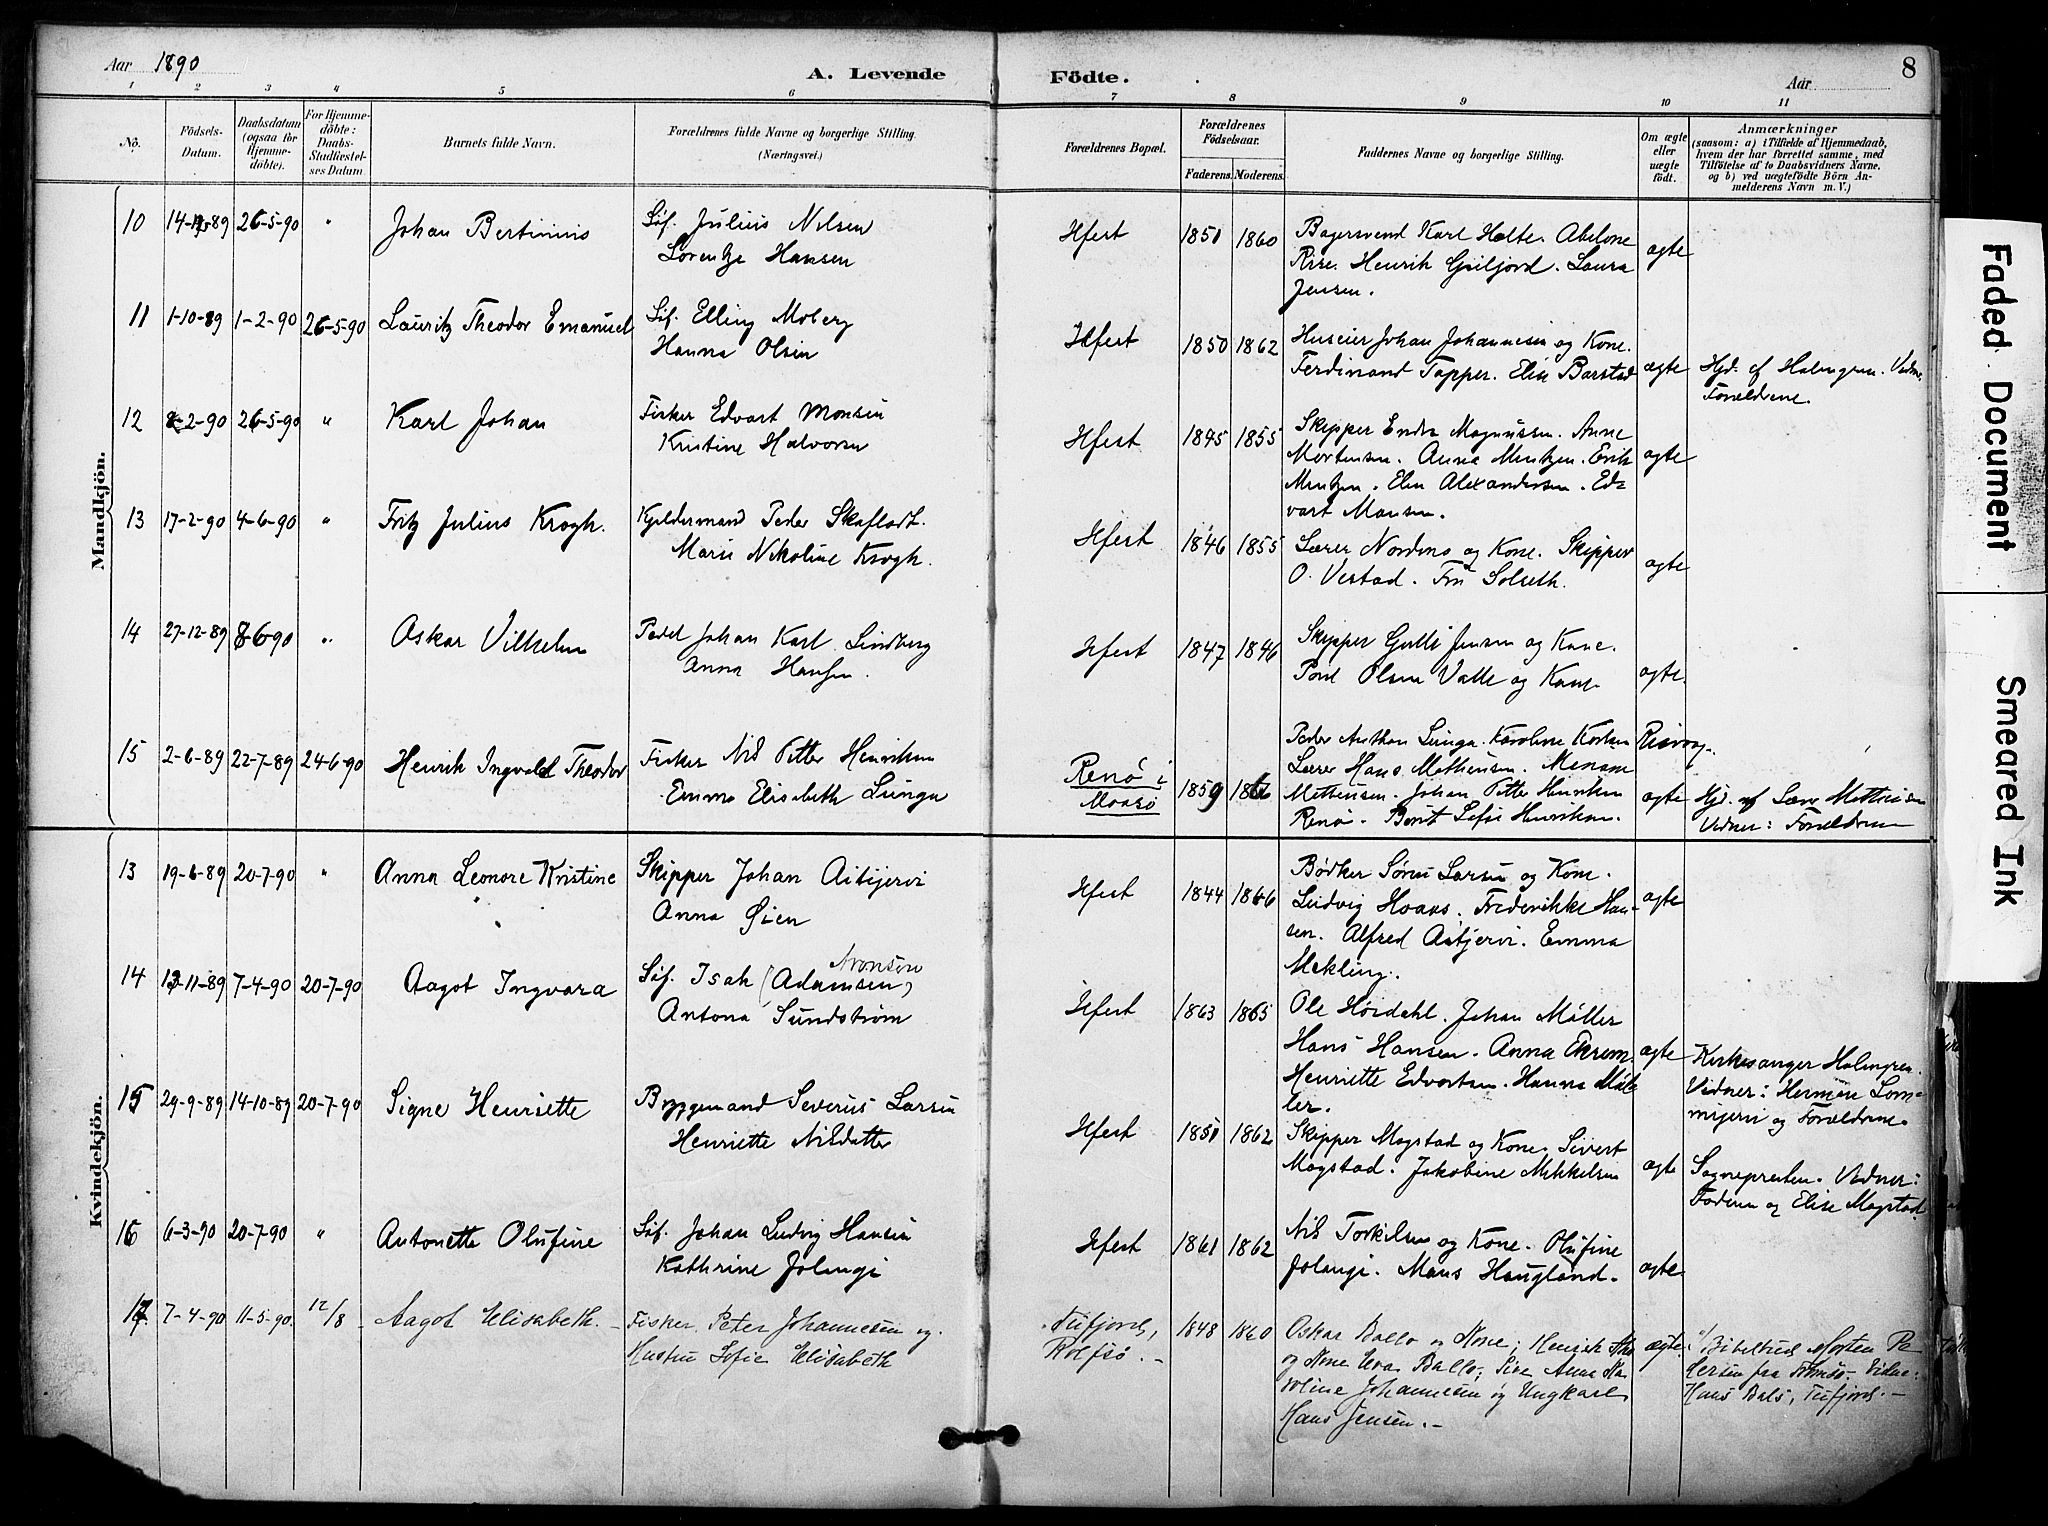 Aar 1890
A. Levende Födte.
Aar
8
1 2 3 4 5 6 7 8 9 10 11
No.
Födsels-Datum.
Daabsdatum (ogsaa for Hjemme-döbte).
For Hjemme-döbte: Daabs-Stadfæstel-ses Datum
Barnets fulde Navn.
Forældrenes fulde Navne og borgerlige Stilling. (Næringsvei.)
Forældrenes Bopæl.
Forældrenes Födselsaar.
Faderens. Moderens.
Faddernes Navne og borgerlige Stilling.
Om ægte eller uægte födt.
Anmærkninger
(saasom: a) i Tilfælde af Hjemmedaab, hvem der har forrettet samme, med Tilföielse af to Daabsvidners Navne, og b) ved uægtefödte Börn An-melderens Navn m. V.)
Mandkjön.
10 26-5-90 " Johan Bertinius
Søf. Julius Nilsen
Lorentze Hansen
Hfest 1851 1860
Bagersvend Karl Holte. Abelone
Riise. Henrik Laura
Jensen.
ægte
11 1-10-89 1-2-90 26-5-90 Lauritz Theodor Emanuel
Søf. Elling Moberg
Hanna Olsen
Hfest 1850 1862
Huseier Johan Johannesen og Kone.
Ferdinand Tapper. Elise Barstad
ægte
Hjd. af Holmgren. Vidne.
Forældrene.
12 2-90 26-5-90 " Karl Johan
Fisker Edvart Monsen
Kristine Halvorsen
Hfest 1845 1855
Skipper Endre Magnussen. Anne
Mortensen. Anna Mentzen. Erik
Mentzen. Elen Alexandersen. Ed-
vart Monsen.
ægte
13 17-2-90 4-6-90 " Fritz Julius Krogh.
Kjeldermand Peder Skaflodt.
Marie Nikoline Krogh.
Hfest 1846 1855
Lærer Nordmo og Kone. Skipper
O. Vestad. Fru Solseth.
ægte
14 27-12-89 8-6-90 " Oskar Vilhelm
Johan Karl Lindberg
Anna Hansen.
Hfest 1847 1846
Skipper Jensen og Kone.
Olsen Valle og Kone.
ægte.
15 2-6-89 22-7-89 24-6-90 Henrik Ingvald Theodor
Fisker Nils Petter Henriksen
Emma Elisabeth Lunga
Renø i
Maasø
1859
Peder Anthon Lunga. Karoline Risvaag.
Lærer Hans Mathisen.
Johan Petter Henriksen
Renø. Berit Sofie Henriksen.
ægte
Hjd. af Lærer
Vidner: Forældrene
Kvindekjön.
13 19-6-89 20-7-90 " Anna Leonore Kristine
Skipper Johan Aitijervi
Anna Øien
Hfest 1844 1866
Bødker Søren Larsen og Kone.
Ludvig Haars. Frederikke Han-
sen. Alfred Aitjervi. Emma
Mekling.
ægte
14 13-11-89 7-4-90 20-7-90 Aagot Ingvara
Søf. Isak (Adamsen) Aronsen
Antona Sundstrøm
Hfest 1863 1865
Ole Høidahl. Johan Møller
Hans Hansen. Anna
Henriette Edvartsen. Hanna Møl-
ler.
ægte
Kirkesanger Holmgren.
Vidner: Lom-
mijervi og Forældrene.
15 29-9-89 14-10-89 20-7-90 Signe Henriette
Byggemand Severus Larsen
Henriette Nilsdatter
Hfest 1851 1862
Skipper Mogstad og Kone. Sivert
Mogstad. Jakobine Mikkelsen
ægte
Sognepresten. Vidner:
Faderen og Elise Mogstad.
16 6-3-90 20-7-90 " Antonette Olufine
Søf. Johan Ludvig Hansen
Kathrine Jolangi
Hfest 1861 1862
Nils Torkilsen og Kone. Olufine
Jolangi. Mons Haugland.
ægte
17 7-4-90 11-5-90. 12/8 Aagot Elisabeth.
Fisker Peter Johannesen og
Hustru Sofie Elisabeth
Tufjord,
Rolfsø.
1848 1860
Oskar Ballo og Kone; Henrik
og Kone Eva Ballo; Pige Anne Ka-
roline Johannesen og Ungkarl
Hans Jensen.
ægte.
Bibelbud Morten Pe-
dersen fra Tromsø. Vidne:
Hans Bals, Tufjord.
Faded Document
Smeared Ink